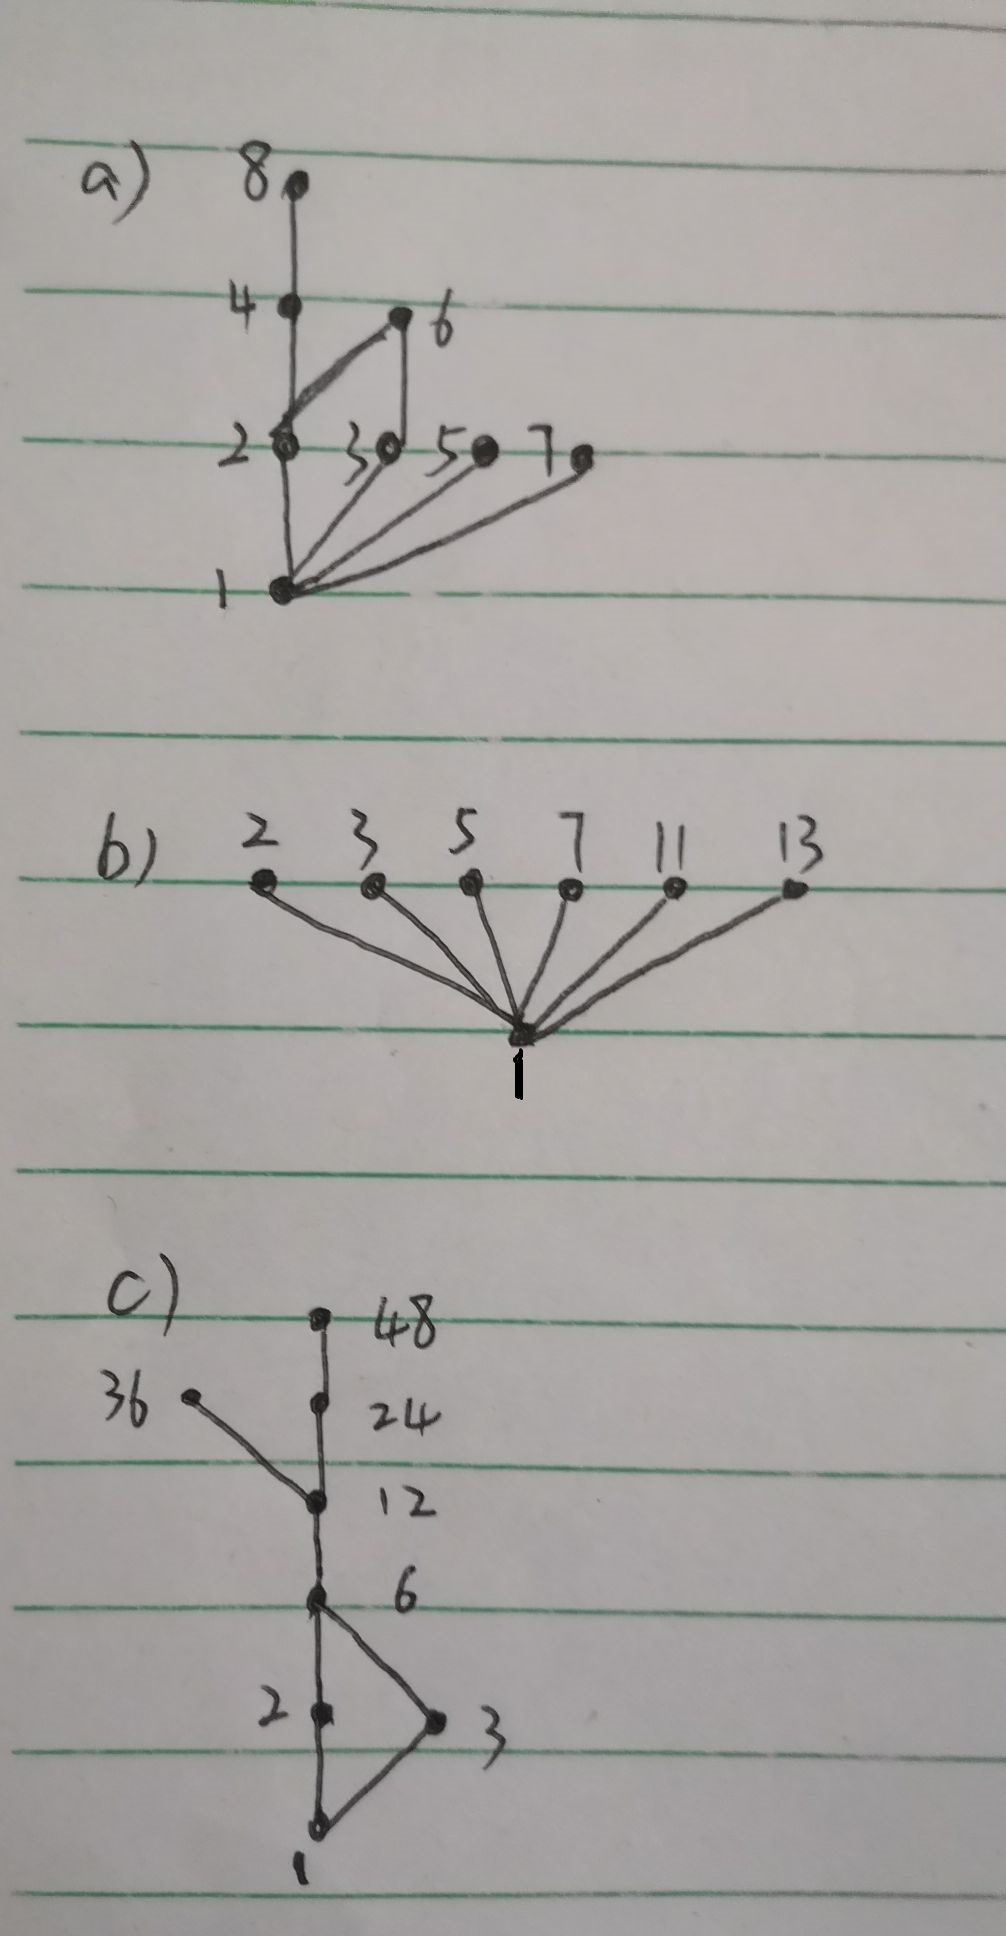 a) 8
4 6
2 3 5 7
1
b) 2 3 5 7 11 13
1
c) 48
36 24
12
6
2 3
1